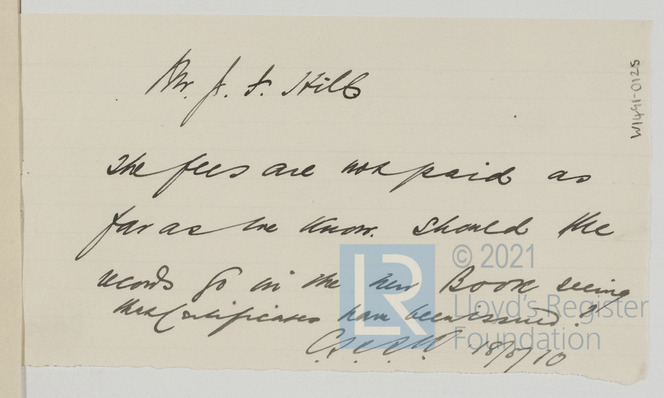 Mr. J. F. Hill
The fees are not paid as
far as we know. Should the
records go in the new Book seeing
that Certificates have been issued?
18/5/10
W1491-0125
© 2021
LR
Lloyd's Register
Foundation